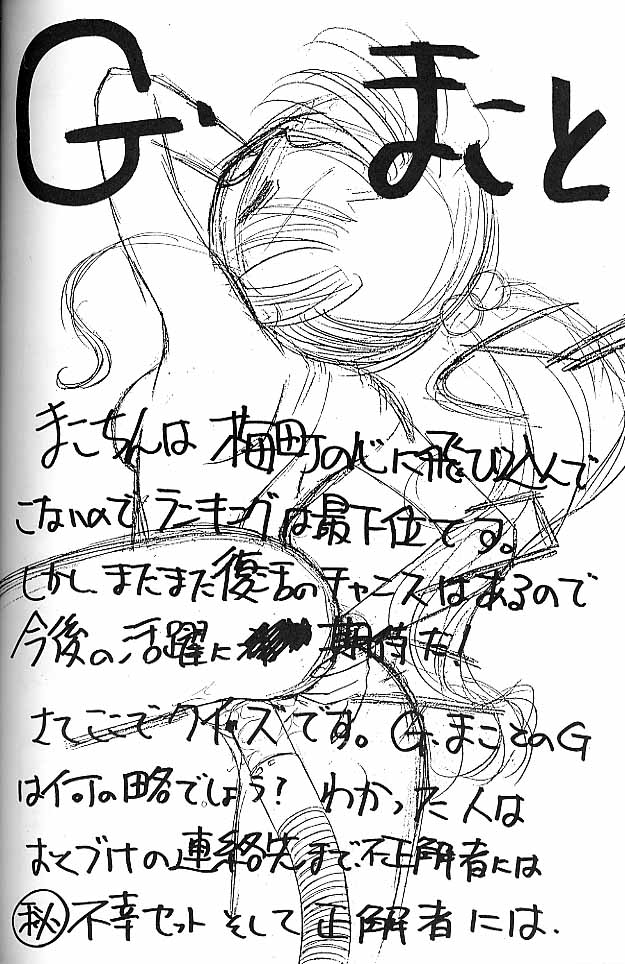 G・まこと
まこちんは 梅町の心に飛び込んで
こないので ランキングは最下位です。
しかし、まだまだ復活のチャンスはあるので
今後の活躍に 期待だ!
さてここでクイズです。G.まことのG
は何の略でしょう? わかった人は
おくづけの連絡先まで、不正解者には
秋 不幸セット そして正解者には.